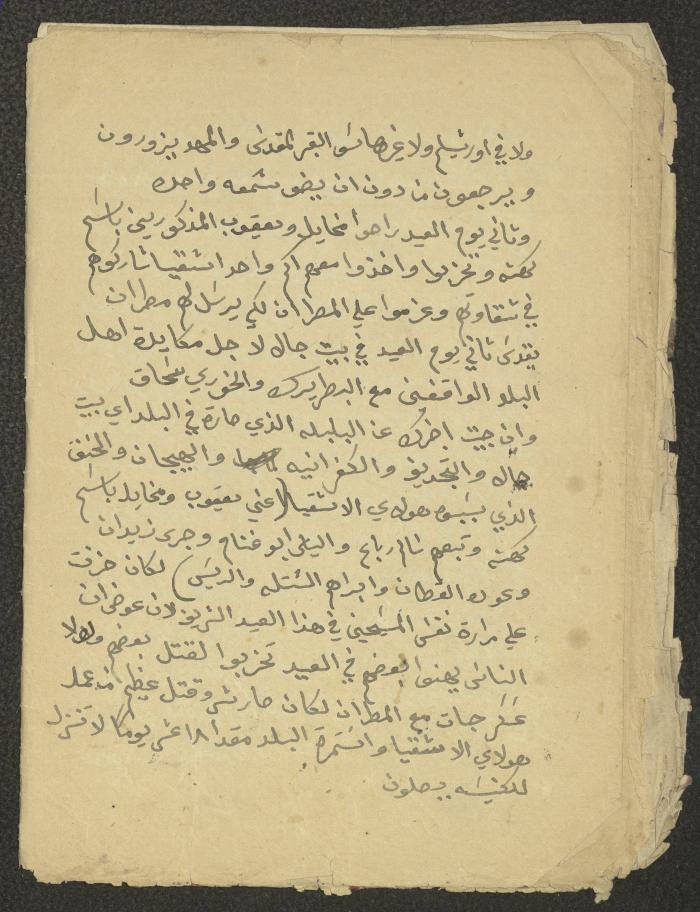 ولا في اورشليم ولا غيرها سوى القبر المقدس والمهد يزورون
ويرجعون من دون ان يضوو شمعه واحده
وثاني يوم العيد راحوا مخايل ويعقوب المذكورين باسم
كهنة وتحزبوا واخذوا معهم اكم واحد اشقيا شاركوهم
في شقاوتهم وعزموا على المطران لكي يرسل لهم مطران
يقدس ثاني يوم العيد في بيت جالا لاجل مكايدة اهل
البلد الواقفين مع البطريرك والخوري سحاق
وان جيت اخبرك عن البلبله الذي صارة في البلد اي بيت
جالا والتجديف والكفرانيه والهيجان والخنق
الذي بسببوه هولاي الاشقيا (اعني يعقوب ومخايل باسم
كهنة وتبعهم سالم رباع والياس ابو غنام وجريس زيدان
وعوده القطان وابراهم الشتله والريس) لكان حزنت
على مرارة نفس المسيحيين في هذا العيد الشريف لان عوض ان
الناس يهنوا بعضهم في العيد تحزبوا لقتل بعضهم ولولا
عسكر جات مع المطران لكان صار شر وقتل عظيم من عمل
هولاي الاشقيا واستمرة البلد مقدار ١٨ عشر يوما لا تنزل
للكنيسه يصلون